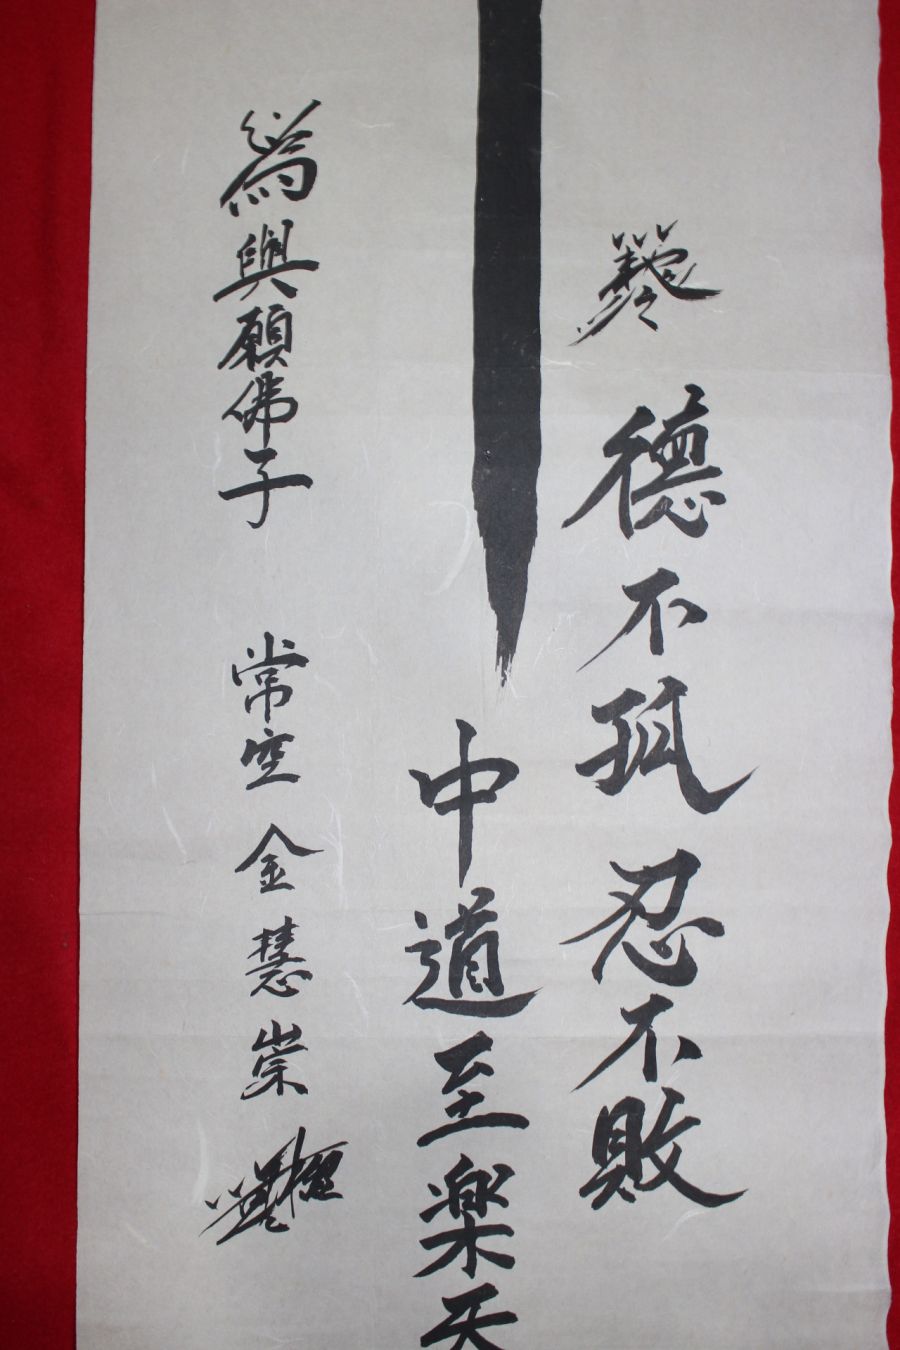 德不孤忍不敗
中道至樂天
爲與願佛子 常空 金慧崇